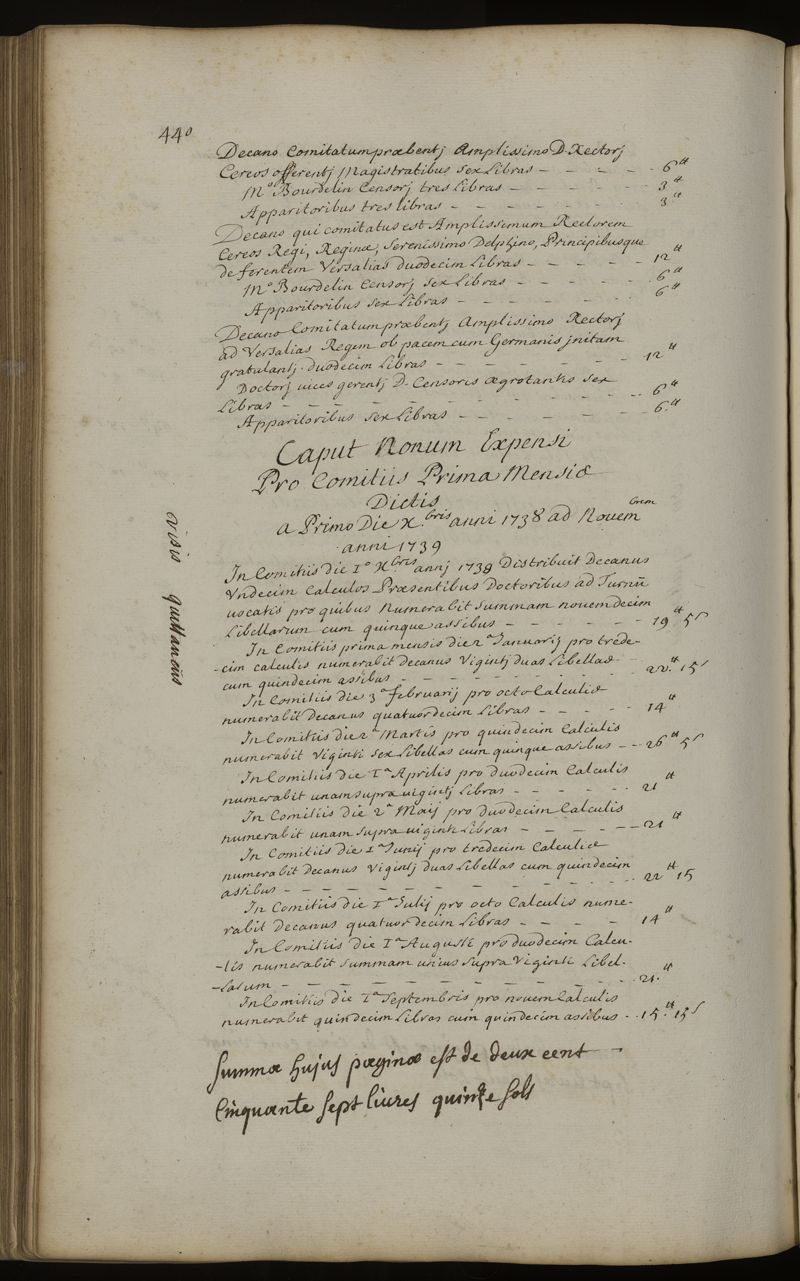 440
Decano Comitatum præbentj Amplissimo D. Rectorj
Cereos offerentj Magistratibus sex Libras - - - - - 6 ᵗᵗ
M.º Bourdelin Censorj tres Libras - - - - - 3 ᵗᵗ
Apparitoribus tres libras - - - - - - - 3 ᵗᵗ
Decano qui comitatus est Amplissimum Rectorem
Cereos Regi, Reginæ, Serenissimo Delphino, Principibusque
deferentem Versalias duodecim Libras - - - - - 12 ᵗᵗ
M.º Bourdelin Censorj sex Libras - - - - - 6 ᵗᵗ
Apparitoribus sex Libras - - - - - - 6 ᵗᵗ
Decano Comitatum præbentj Amplissimo Rectorj
ad Versalias Regem ob pacem cum Germanis jnitam
gratulantj. duodecim Libras - - - - - - 12 ᵗᵗ
Doctorj vices gerentj D. Censoris ægrotantis sex
Libras - - - - - - - - - - - - 6 ᵗᵗ
Apparitoribus sex Libras - - - - - - 6 ᵗᵗ
Caput Nonum Expensi
Pro Comitiis Prima Mensis
Dictis
a Primo Die X.bris anni 1738 ad Novembrem
anni 1739
In Comitiis die 1º Xbris annj 1738 Distribuit Decanus
Vndecim Calculos Præsentibus Doctoribus ad Turnũ
vocatis pro quibus Numerabit summam novemdecim
Libellarum cum quinque assibus - - - - - - 19 ᵗᵗ 5 ˢ
In Comitiis prima mensis die 2ª Januarij pro trede-
-cim calculis numerabit Decanus Vigintj duas Libellas
cum quindecim assibus - - - - - - - - - 22 ᵗᵗ 15 ˢ
In Comitiis die 3ª februarij pro octo Calculis
numerabit Decanus quatuordecim Libras - - - - 14 ᵗᵗ
In Comitiis die 2ª Martis pro quindecim Calculis
numerabit Viginti sex Libellas cum quinque assibus - - 26 ᵗᵗ 5 ˢ
In Comitiis Die 1ª Aprilis pro duodecim Calculis
numerabit unam supra vigintj Libras - - - - - 21 ᵗᵗ
In Comitiis die 2ª Maij pro duodecim Calculis
numerabit unam supra viginti Libras - - - - - - 21 ᵗᵗ
In Comitiis die 1ª Junij pro tredecim Calculis
numerabit Decanus Vigintj duas Libellas cum quindecim
assibus - - - - - - - - - - - - 22 ᵗᵗ 15
In Comitiis die 1ª Julij pro octo Calculis nume-
rabit Decanus quatuordecim Libras - - - - 14 ᵗᵗ
In Comitiis die 1ª Augusti pro duodecim Calcu-
-lis numerabit summam unius supra Viginti Libel-
-larum - - - - - - - - - - - - 21. ᵗᵗ
In Comitiis die 1ª Septembris pro novem Calculis
numerabit quindecim Libras cum quindecim assibus - - 15 ᵗᵗ 15 ˢ
Summa hujus paginæ est de deux cent
Cinquante sept livres quinze sols
visis quittanciis